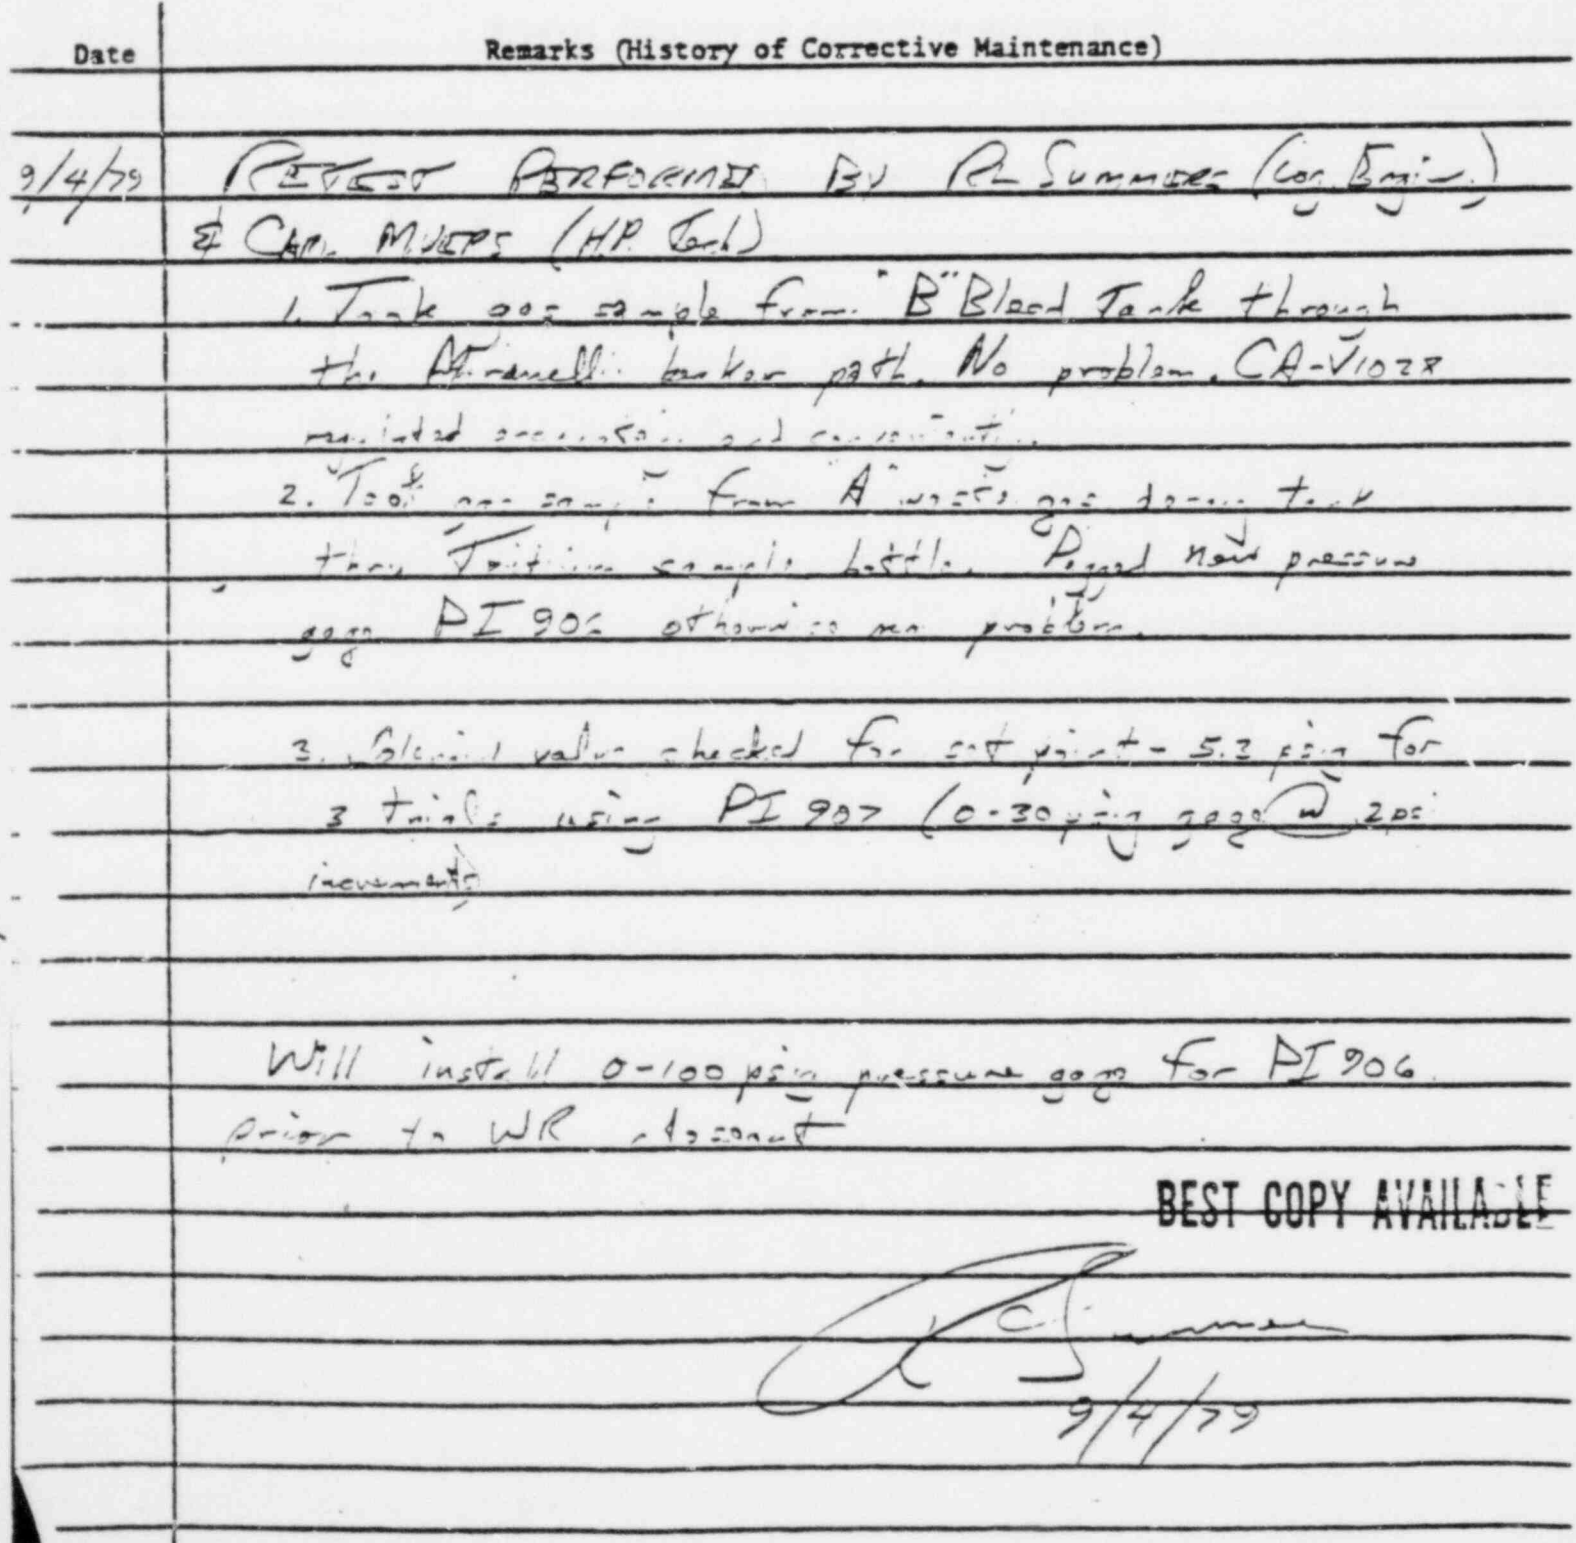 Date Remarks (History of Corrective Maintenance)
9/4/79 RETEST PERFORMED BY RL SUMMERS (Cog. Engin.)
& CARL MYERS (H.P. Tech)
1. Took gas sample from "B" Bleed Tank through
the Marinelli beaker path. No problem. CA-V1028
regulated and
2. Took gas sample from "A" waste gas decay tank
thru Tritium sample bottle. Pegged new pressure
gage PI 906 otherwise no problem.
3. valve checked for set point - 5.2 psig for
3 trials using PI 907 (0-30 psig gage w 2 psi
increments)
Will install 0-100 psig pressure gage for PI 906
prior to WR closeout
BEST COPY AVAILABLE
9/4/79